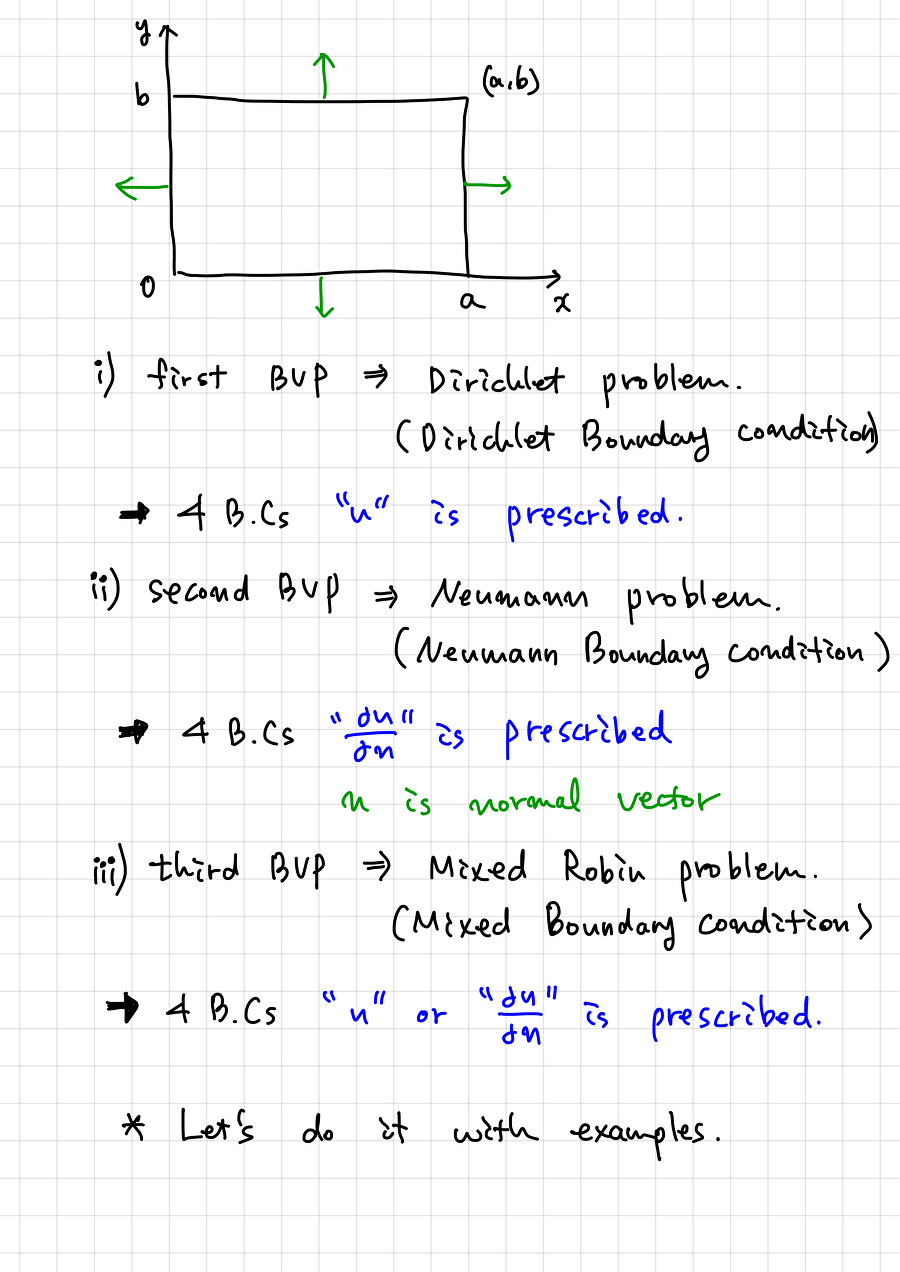 y
b
(a,b)
0
a
x
i) first BVP ⇒ Dirichlet problem.
(Dirichlet Boundary condition)
➡ 4 B.Cs "u" is prescribed.
ii) second BVP ⇒ Neumann problem.
(Neumann Boundary condition)
➡ 4 B.Cs "∂u/∂n" is prescribed
n is normal vector
iii) third BVP ⇒ Mixed Robin problem.
(Mixed Boundary condition)
➡ 4 B.Cs "u" or "∂u/∂n" is prescribed.
* Let's do it with examples.